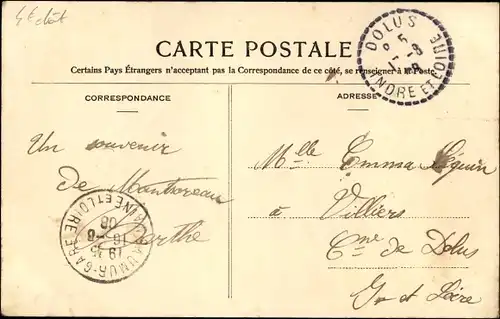 4e dét
CARTE POSTALE
Certains Pays Étrangers n'acceptant pas la Correspondance de ce côté, se renseigner à la Poste.
CORRESPONDANCE
ADRESSE
DOLUS
INDRE ET LOIRE
Un souvenir
de Montsoreau
Berthe
SAUMUR-GARE
MAINE ET LOIRE
19 15
16 - 8
08
Melle Emma Séguin
à Villiers
Cne de Dolus
In et Loire